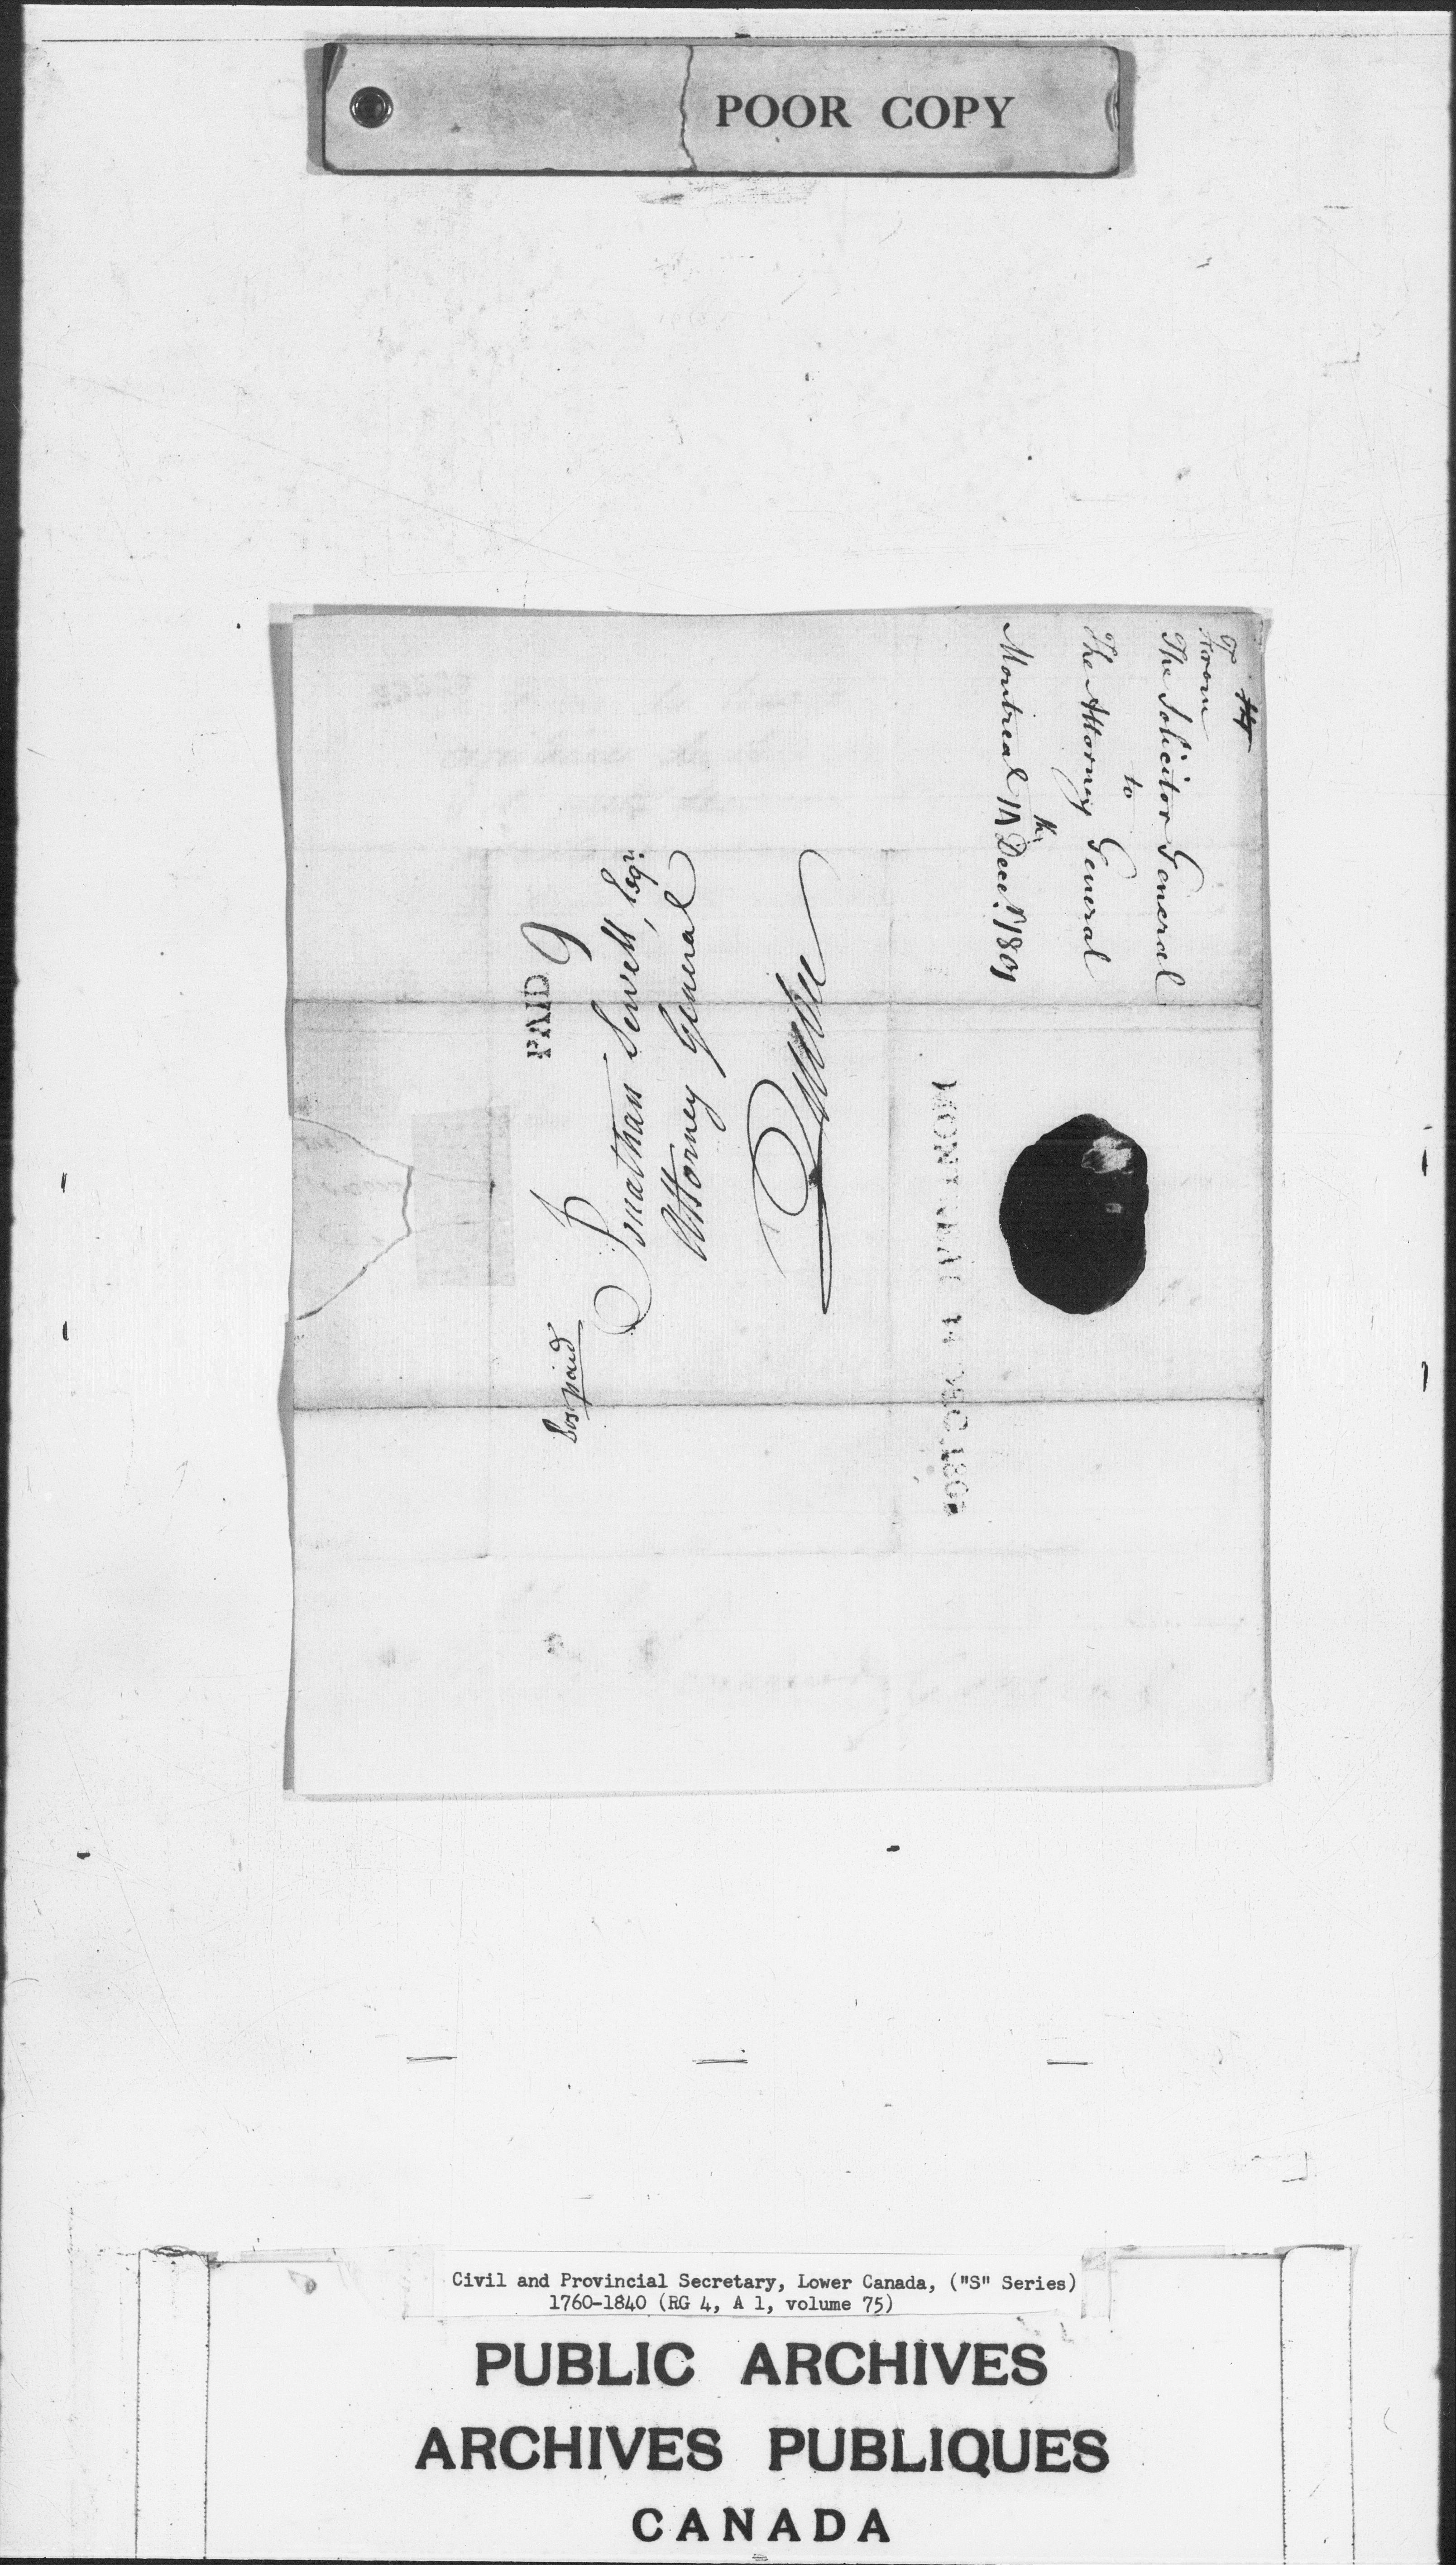 POOR COPY
From
The Solicitor General
to
The Attorney General
Montreal 14th Decr. 1801
PAID 9
Pos paid
Jonathan Sewell, Esqr.
Attorney General
Quebec
MONTREAL
DEC 1801
Civil and Provincial Secretary, Lower Canada, ("S" Series)
1760-1840 (RG 4, A 1, volume 75)
PUBLIC ARCHIVES
ARCHIVES PUBLIQUES
CANADA